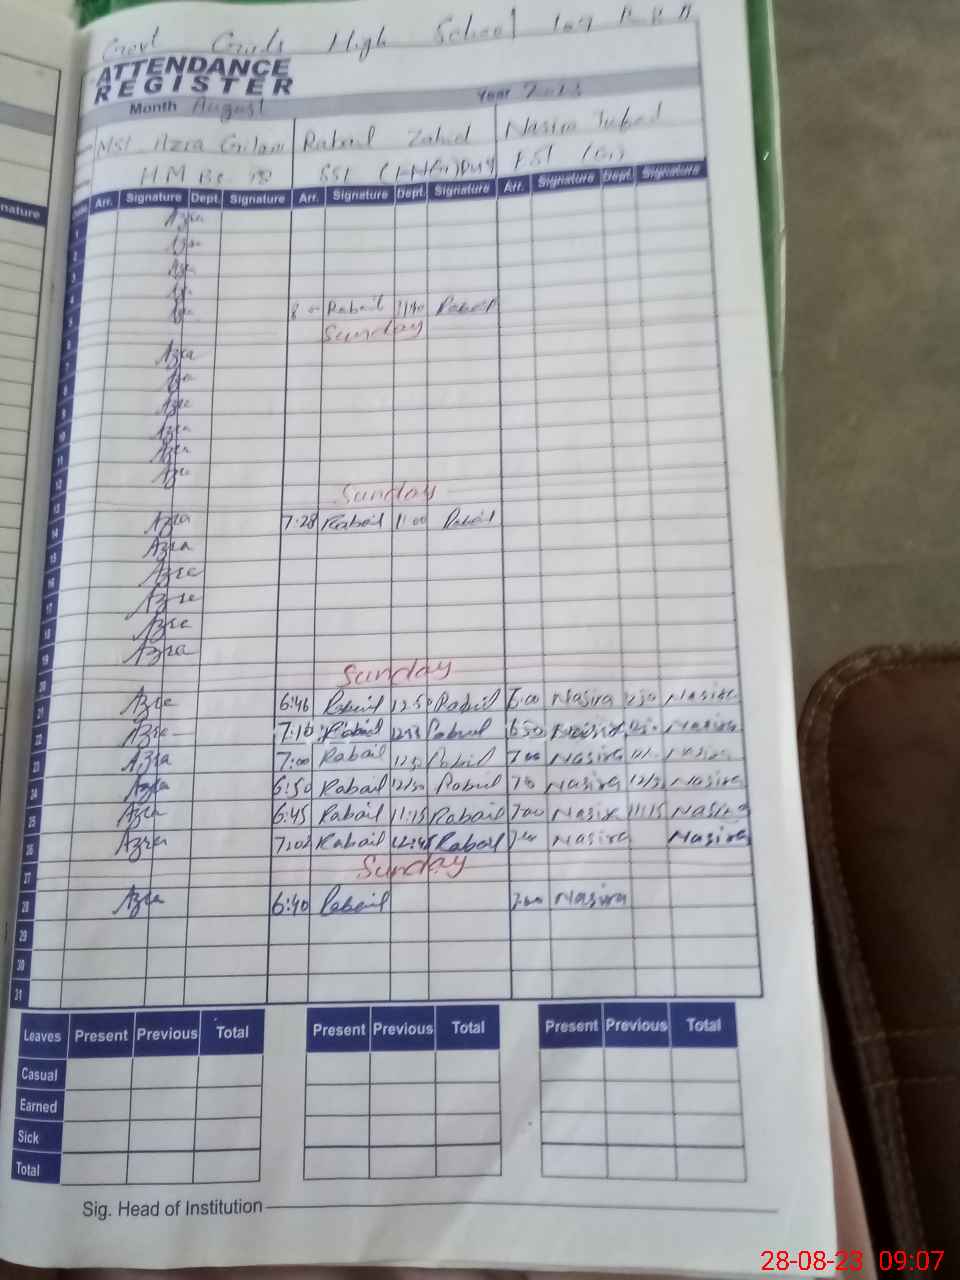 Govt Girls High School
ATTENDANCE
REGISTER
Month August Year 2023
Mst Azra Gilani Rabail Zahid Nasira
H.M BS 18 SST
nature
Arr. Signature Dept. Signature Arr. Signature Dept. Signature Arr. Signature Dept. Signature
1 Azra
2 Azra
3 Azra
4 Azra
5 Azra 8 Rabail 11/40 Rabail
6 Sunday
7 Azra
8 Azra
9 Azra
10 Azra
11 Azra
12 Azra
13 Sunday
14 Azra 7:28 Rabail 11:00 Rabail
15 Azra
16 Azra
17 Azra
18 Azra
19 Azra
20 Sunday
21 Azra 6:46 Rabail 12:50 Rabail 7:00 Nasira Nasira
22 Azra 7:10 Rabail Rabail 6:50 Nasira Nasira
23 Azra 7:00 Rabail Rabail 7:00 Nasira Nasira
24 Azra 6:50 Rabail 12/30 Rabail Nasira Nasira
25 Azra 6:45 Rabail 11:15 Rabail 7:00 Nasira 11:15 Nasira
26 Azra 7:02 Rabail 12:45 Rabail Nasira Nasira
27 Sunday
28 Azra 6:40 Rabail 7:00 Nasira
29
30
31
Leaves Present Previous Total Present Previous Total Present Previous Total
Casual
Earned
Sick
Total
Sig. Head of Institution
28-08-23 09:07